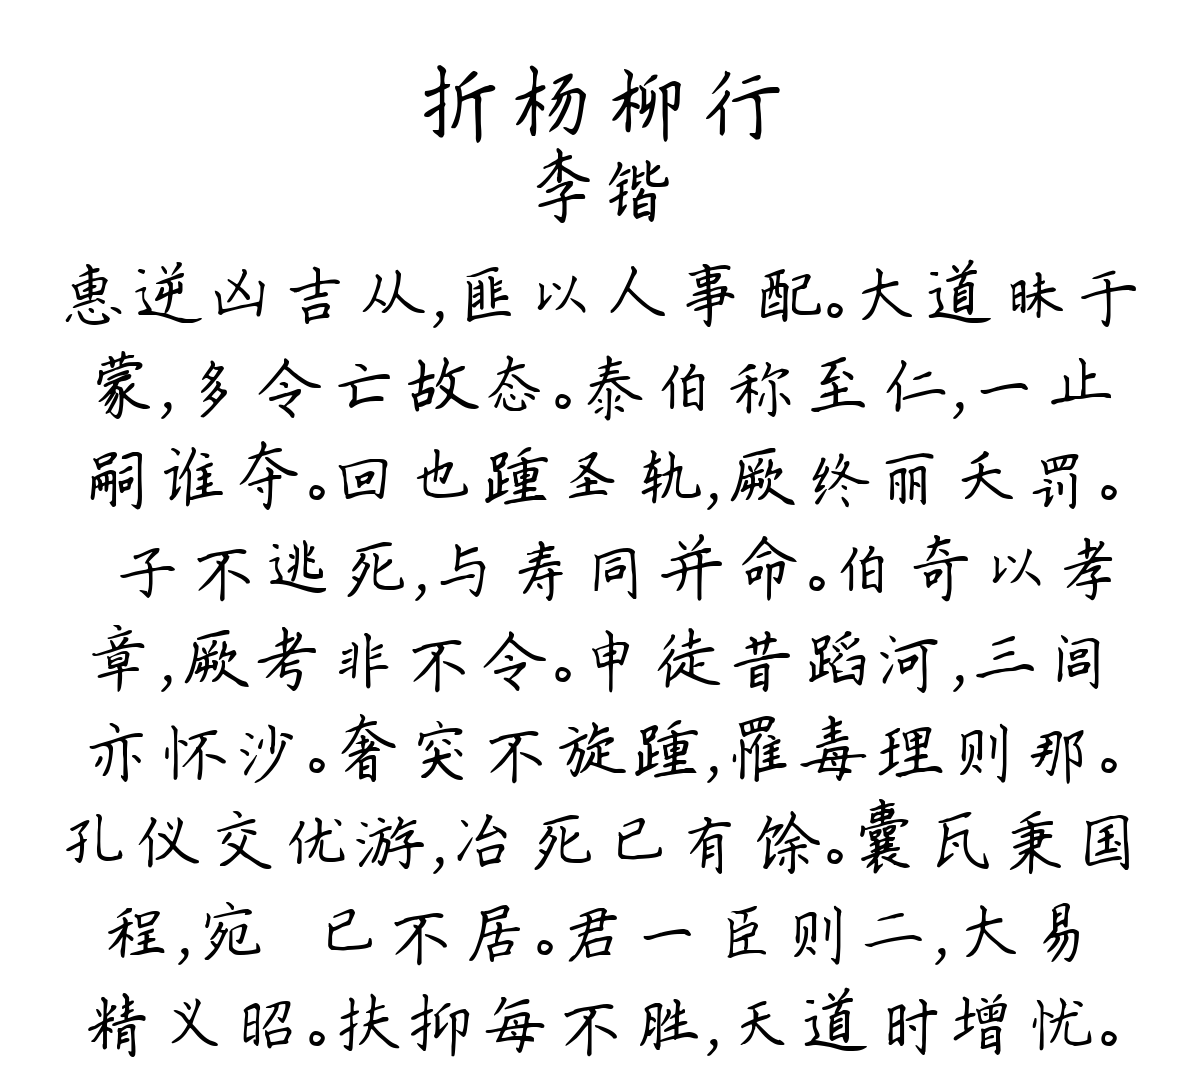 折杨柳行
李锴
惠逆凶吉从,匪以人事配。大道昧于
蒙,多令亡故态。泰伯称至仁,一止
嗣谁夺。回也踵圣轨,厥终丽夭罚。
子不逃死,与寿同并命。伯奇以孝
章,厥考非不令。申徒昔蹈河,三闾
亦怀沙。奢突不旋踵,罹毒理则那。
孔仪交优游,冶死已有馀。囊瓦秉国
程,宛 已不居。君一臣则二,大易
精义昭。扶抑每不胜,天道时增忧。